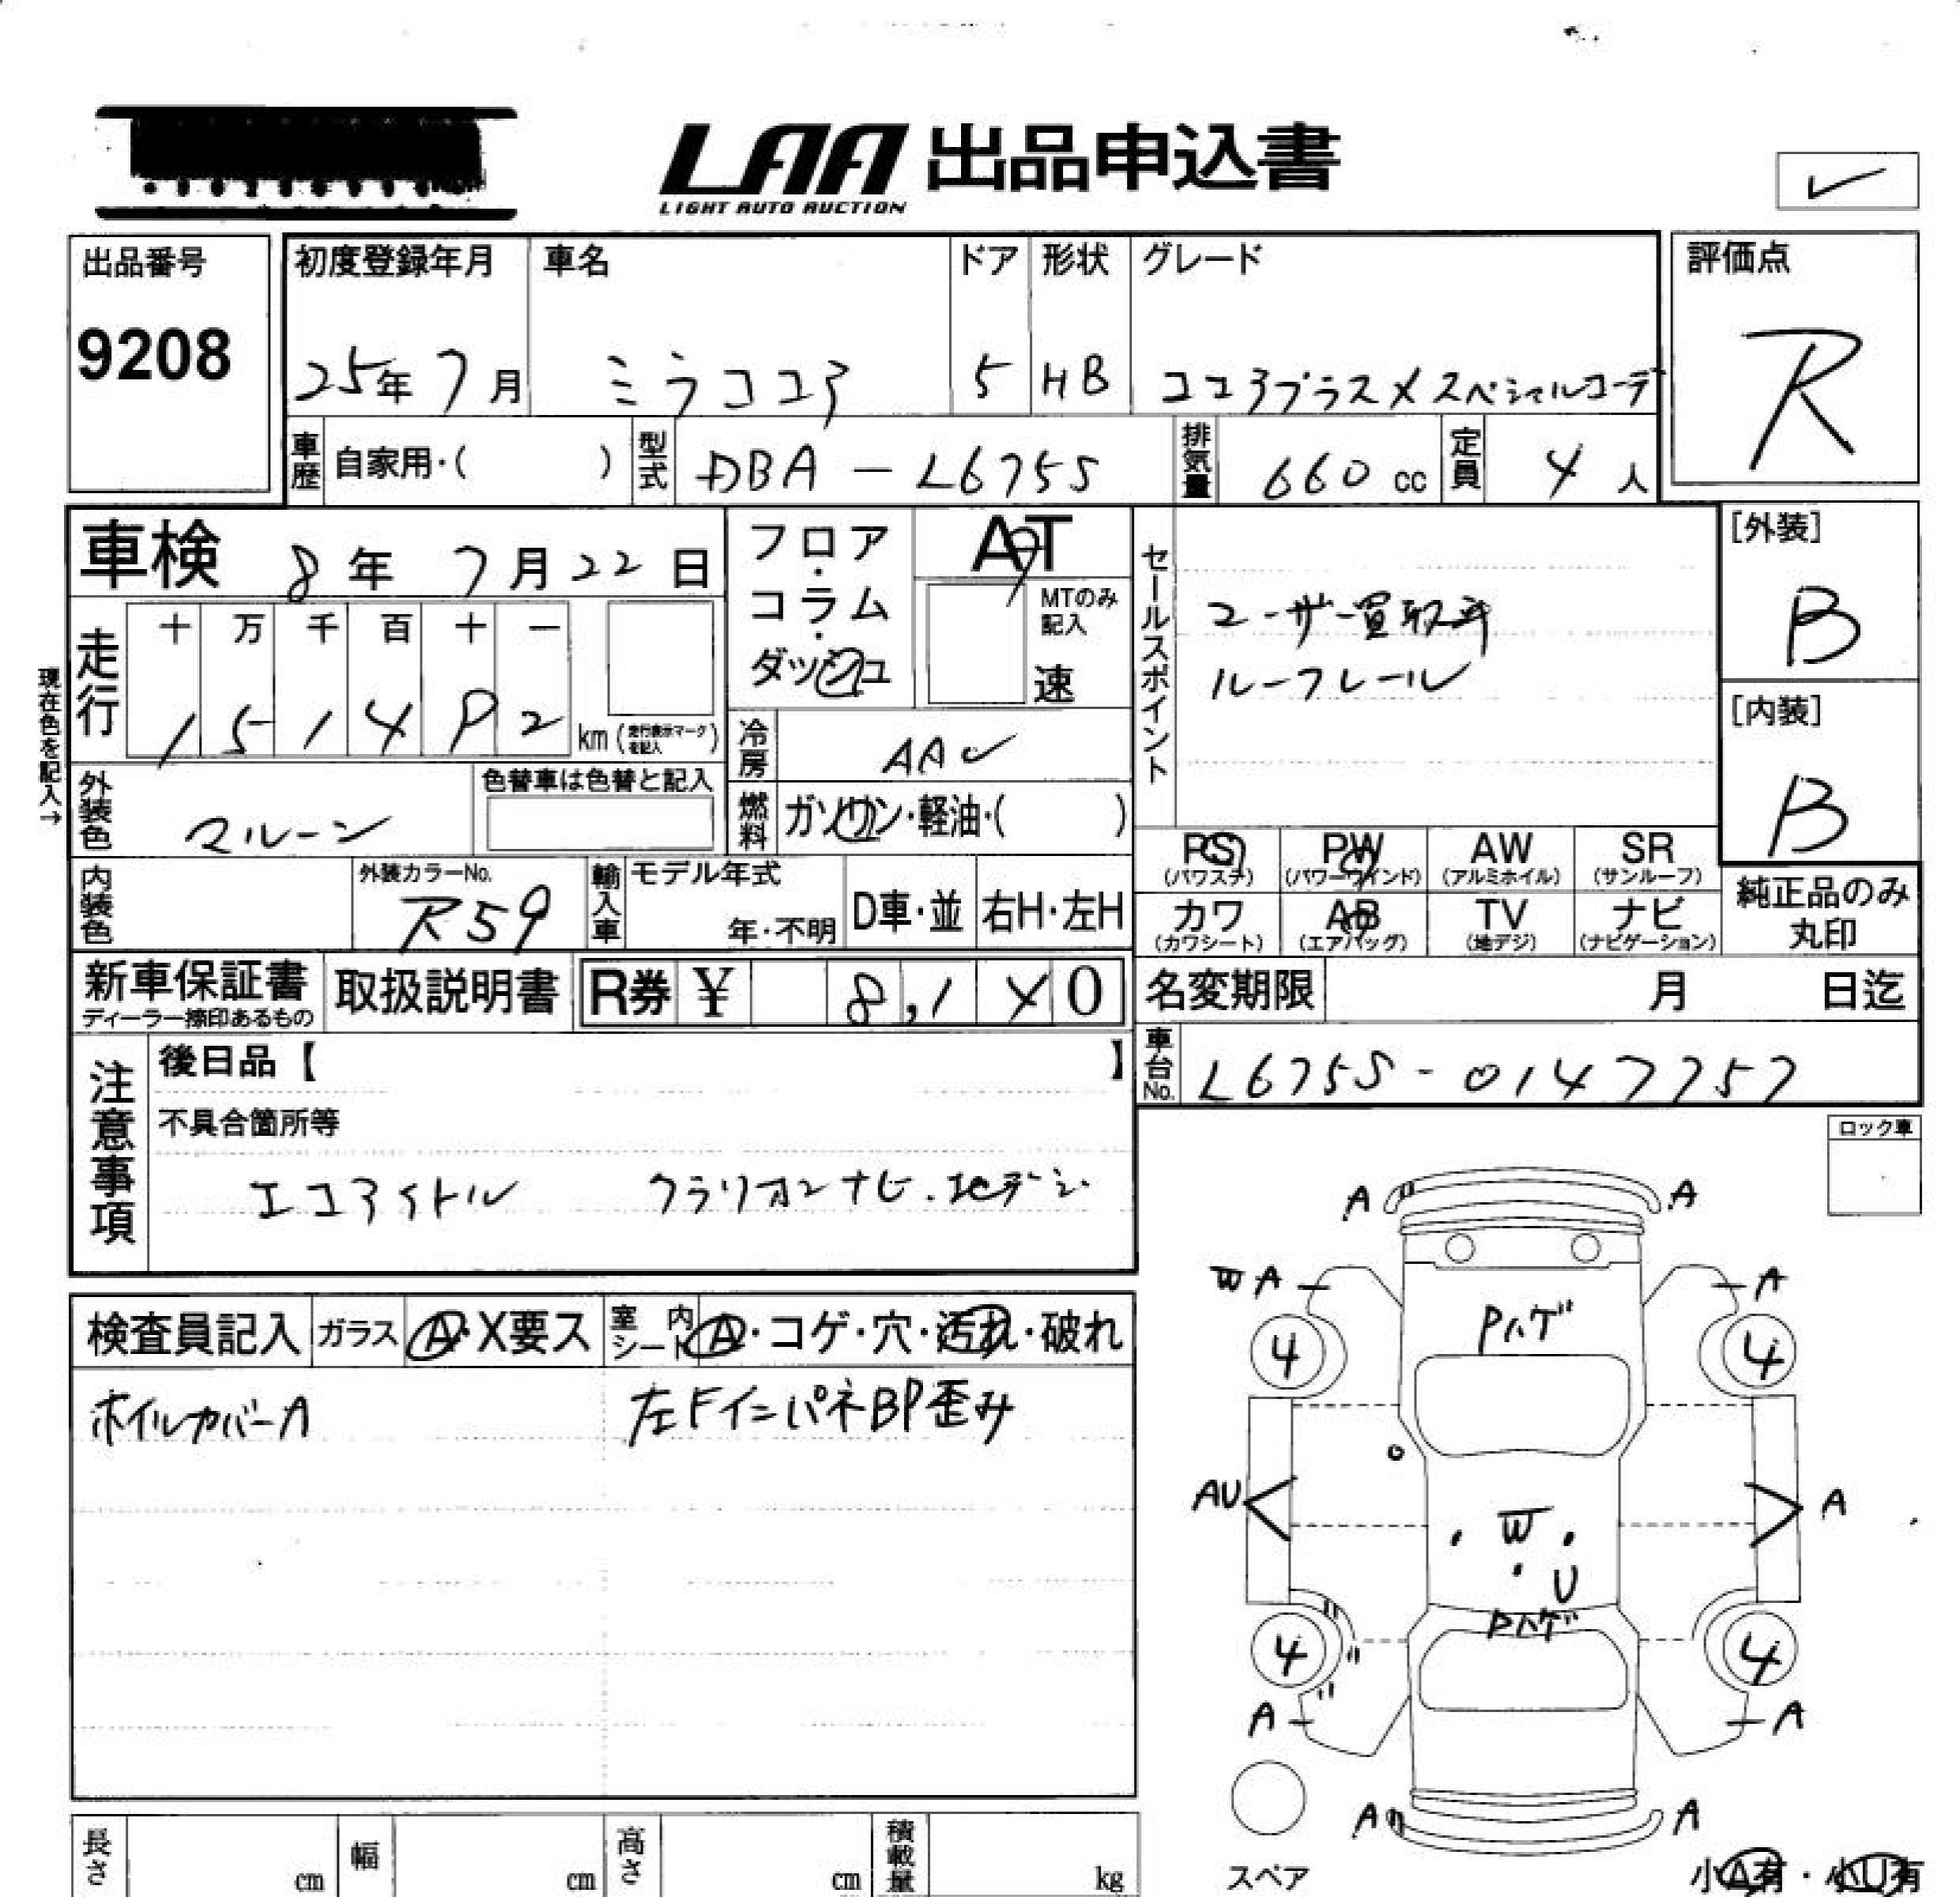 LAA 出品申込書
LIGHT AUTO AUCTION
出品番号
9208
初度登録年月
25年 7月
車名
ミラココア
ドア
5
形状
HB
グレード
ココアプラスXスペシャルコーデ
評価点
R
車歴 自家用・( )
型式 DBA-L675S
排気量 660 cc
定員 4 人
車検 8年 7月 22日
フロア・コラム・ダッシュ
AT
MTのみ記入
速
セールスポイント
ユーザー買取車
ルーフレール
[外装]
B
[内装]
B
現在色を記入→
走行
十 万 千 百 十 一
km (走行表示マークを記入)
冷房 AAC
外装色 マルーン
色替車は色替と記入
燃料 ガソリン・軽油・( )
PS (パワステ)
PW (パワーウインド)
AW (アルミホイル)
SR (サンルーフ)
カワ (カワシート)
AB (エアバッグ)
TV (地デジ)
ナビ (ナビゲーション)
純正品のみ
丸印
内装色
外装カラーNo.
R59
輸入車
モデル年式
年・不明
D車・並
右H・左H
新車保証書
ディーラー捺印あるもの
取扱説明書
R券 ¥
名変期限 月 日迄
車台No. L675S-0147757
注意事項
後日品【 】
不具合箇所等
エコアイドル クラリオンナビ.地デジ
ロック車
検査員記入
ガラス A・X要ス
室内シート A・コゲ・穴・汚れ・破れ
ホイルカバーA
左FインパネBP歪み
A A
WA A
Pハゲ
4 4
AU A
W
U
Pハゲ
4 4
A A
A A
スペア
小A有・小U有
長さ cm
幅 cm
高さ cm
積載量 kg